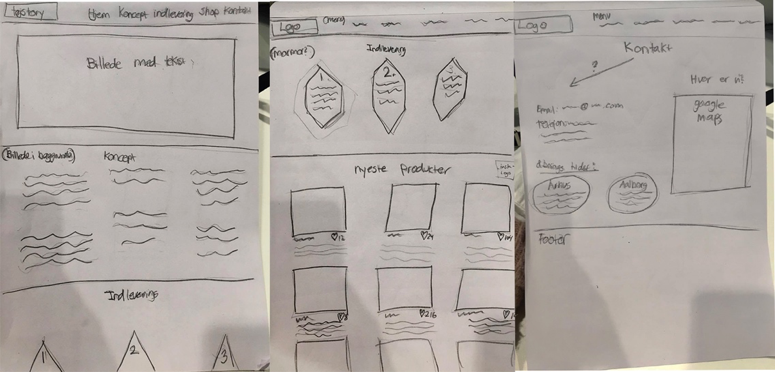 Hjem Koncept indlevering Shop Kontakt
Billede med tekst
(Billede i baggrund)
Koncept
Indleverings
1
2
3
Logo
(menu)
Indlevering
(marmor?)
1.
2.
3
nyeste produkter
♡12
♡24
♡216
Logo
menu
Kontakt
?
Hvor er vi?
Email: @ .com
Telefon
google
maps
åbnings tider:
Århus
Aalborg
Footer